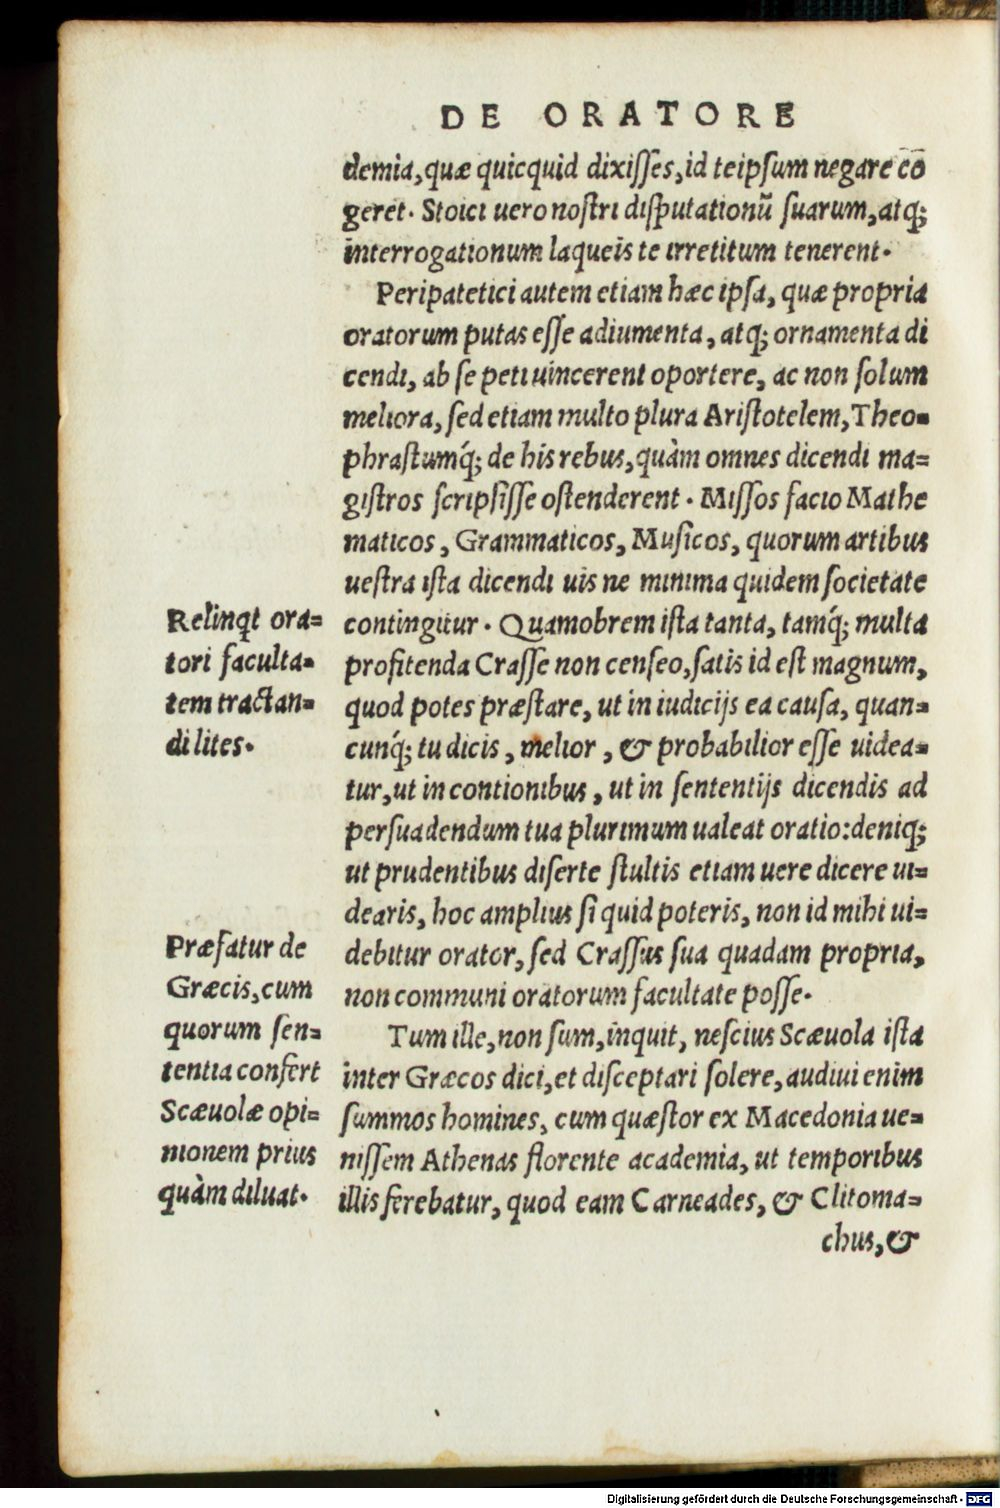 DE ORATORE
demia, quæ quicquid dixisses, id teipsum negare cō
geret. Stoici uero nostri disputationū suarum, atq;
interrogationum laqueis te irretitum tenerent.
Peripatetici autem etiam hæc ipsa, quæ propria
oratorum putas esse adiumenta, atq; ornamenta di
cendi, ab se peti uincerent oportere, ac non solum
meliora, sed etiam multo plura Aristotelem, Theo=
phrastumq́; de his rebus, quàm omnes dicendi ma=
gistros scripsisse ostenderent. Missos facio Mathe
maticos, Grammaticos, Musicos, quorum artibus
uestra ista dicendi uis ne minima quidem societate
contingitur. Quamobrem ista tanta, tamq́; multa
profitenda Crasse non censeo, satis id est magnum,
quod potes præstare, ut in iudicijs ea causa, quan=
cunq́; tu dicis, melior, & probabilior esse uidea=
tur, ut in contionibus, ut in sententijs dicendis ad
persuadendum tua plurimum ualeat oratio: deniq;
ut prudentibus diserte stultis etiam uere dicere ui=
dearis, hoc amplius si quid poteris, non id mihi ui=
debitur orator, sed Crassus sua quadam propria,
non communi oratorum facultate posse.
Tum ille, non sum, inquit, nescius Scæuola ista
inter Græcos dici, et disceptari solere, audiui enim
summos homines, cum quæstor ex Macedonia ue=
nissem Athenas florente academia, ut temporibus
illis ferebatur, quod eam Carneades, & Clitoma=
chus, &
Relinqt ora=
tori faculta=
tem tractan=
di lites.
Præfatur de
Græcis, cum
quorum sen=
tentia confert
Scæuolæ opi=
nionem prius
quàm diluat.
Digitalisierung gefördert durch die Deutsche Forschungsgemeinschaft - DFG